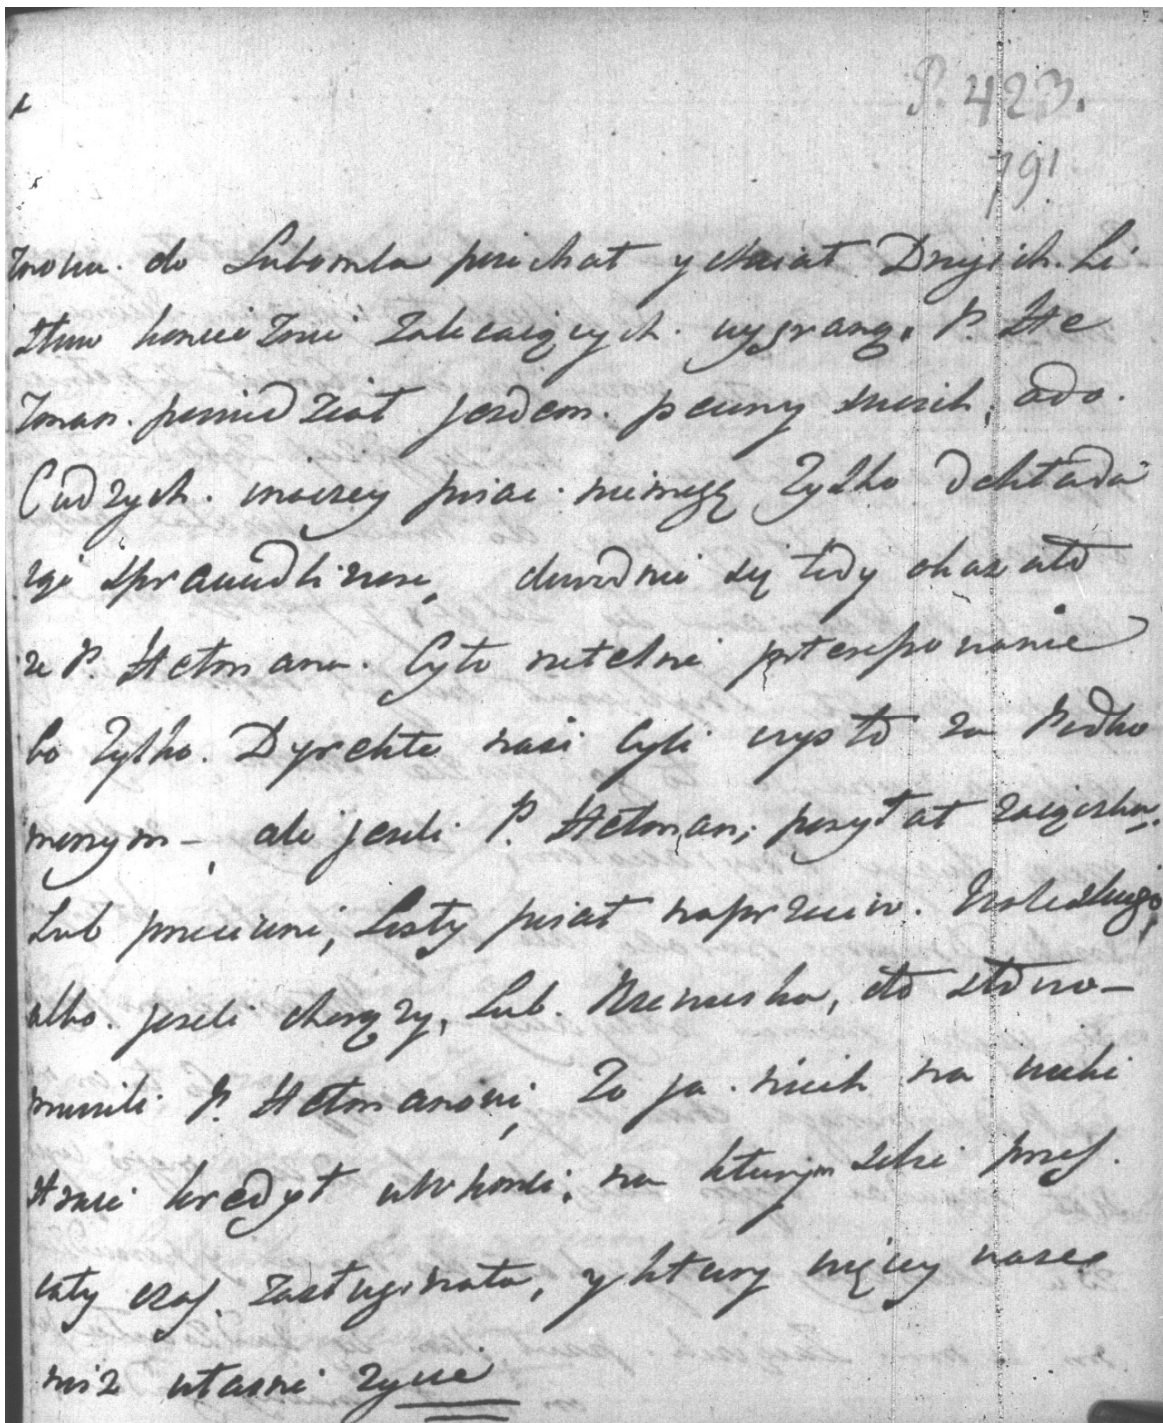 P. 423.
791
znowu do Lubomla posichał y chciał Drugich Li
stuw koniecznie zalecaiących wygraną. P. He
tman powiedział jesdem pewny swoich, a do
Cudzych inaczey pisac niemogę Tylko dokłada
iąc sprawiedliwosc, dowodnie się tedy okazało
ze P. Hetmana było rzetelne postempowanie
bo Tylko Dyrekte nasi byli czysto za Podko
morzym –, ale jezeli P. Hetman, posyłał
Lub przeciwne, Listy pisał naprzeciw
albo jezeli chorązy, Lub, oto słowo –
muwili P. Hetmanowi, To ja niech na wieki
strace kredyt u W, na kturym sobie przez
cały czas zasługiwała, y ktury więcy waze
nisz własne zycie